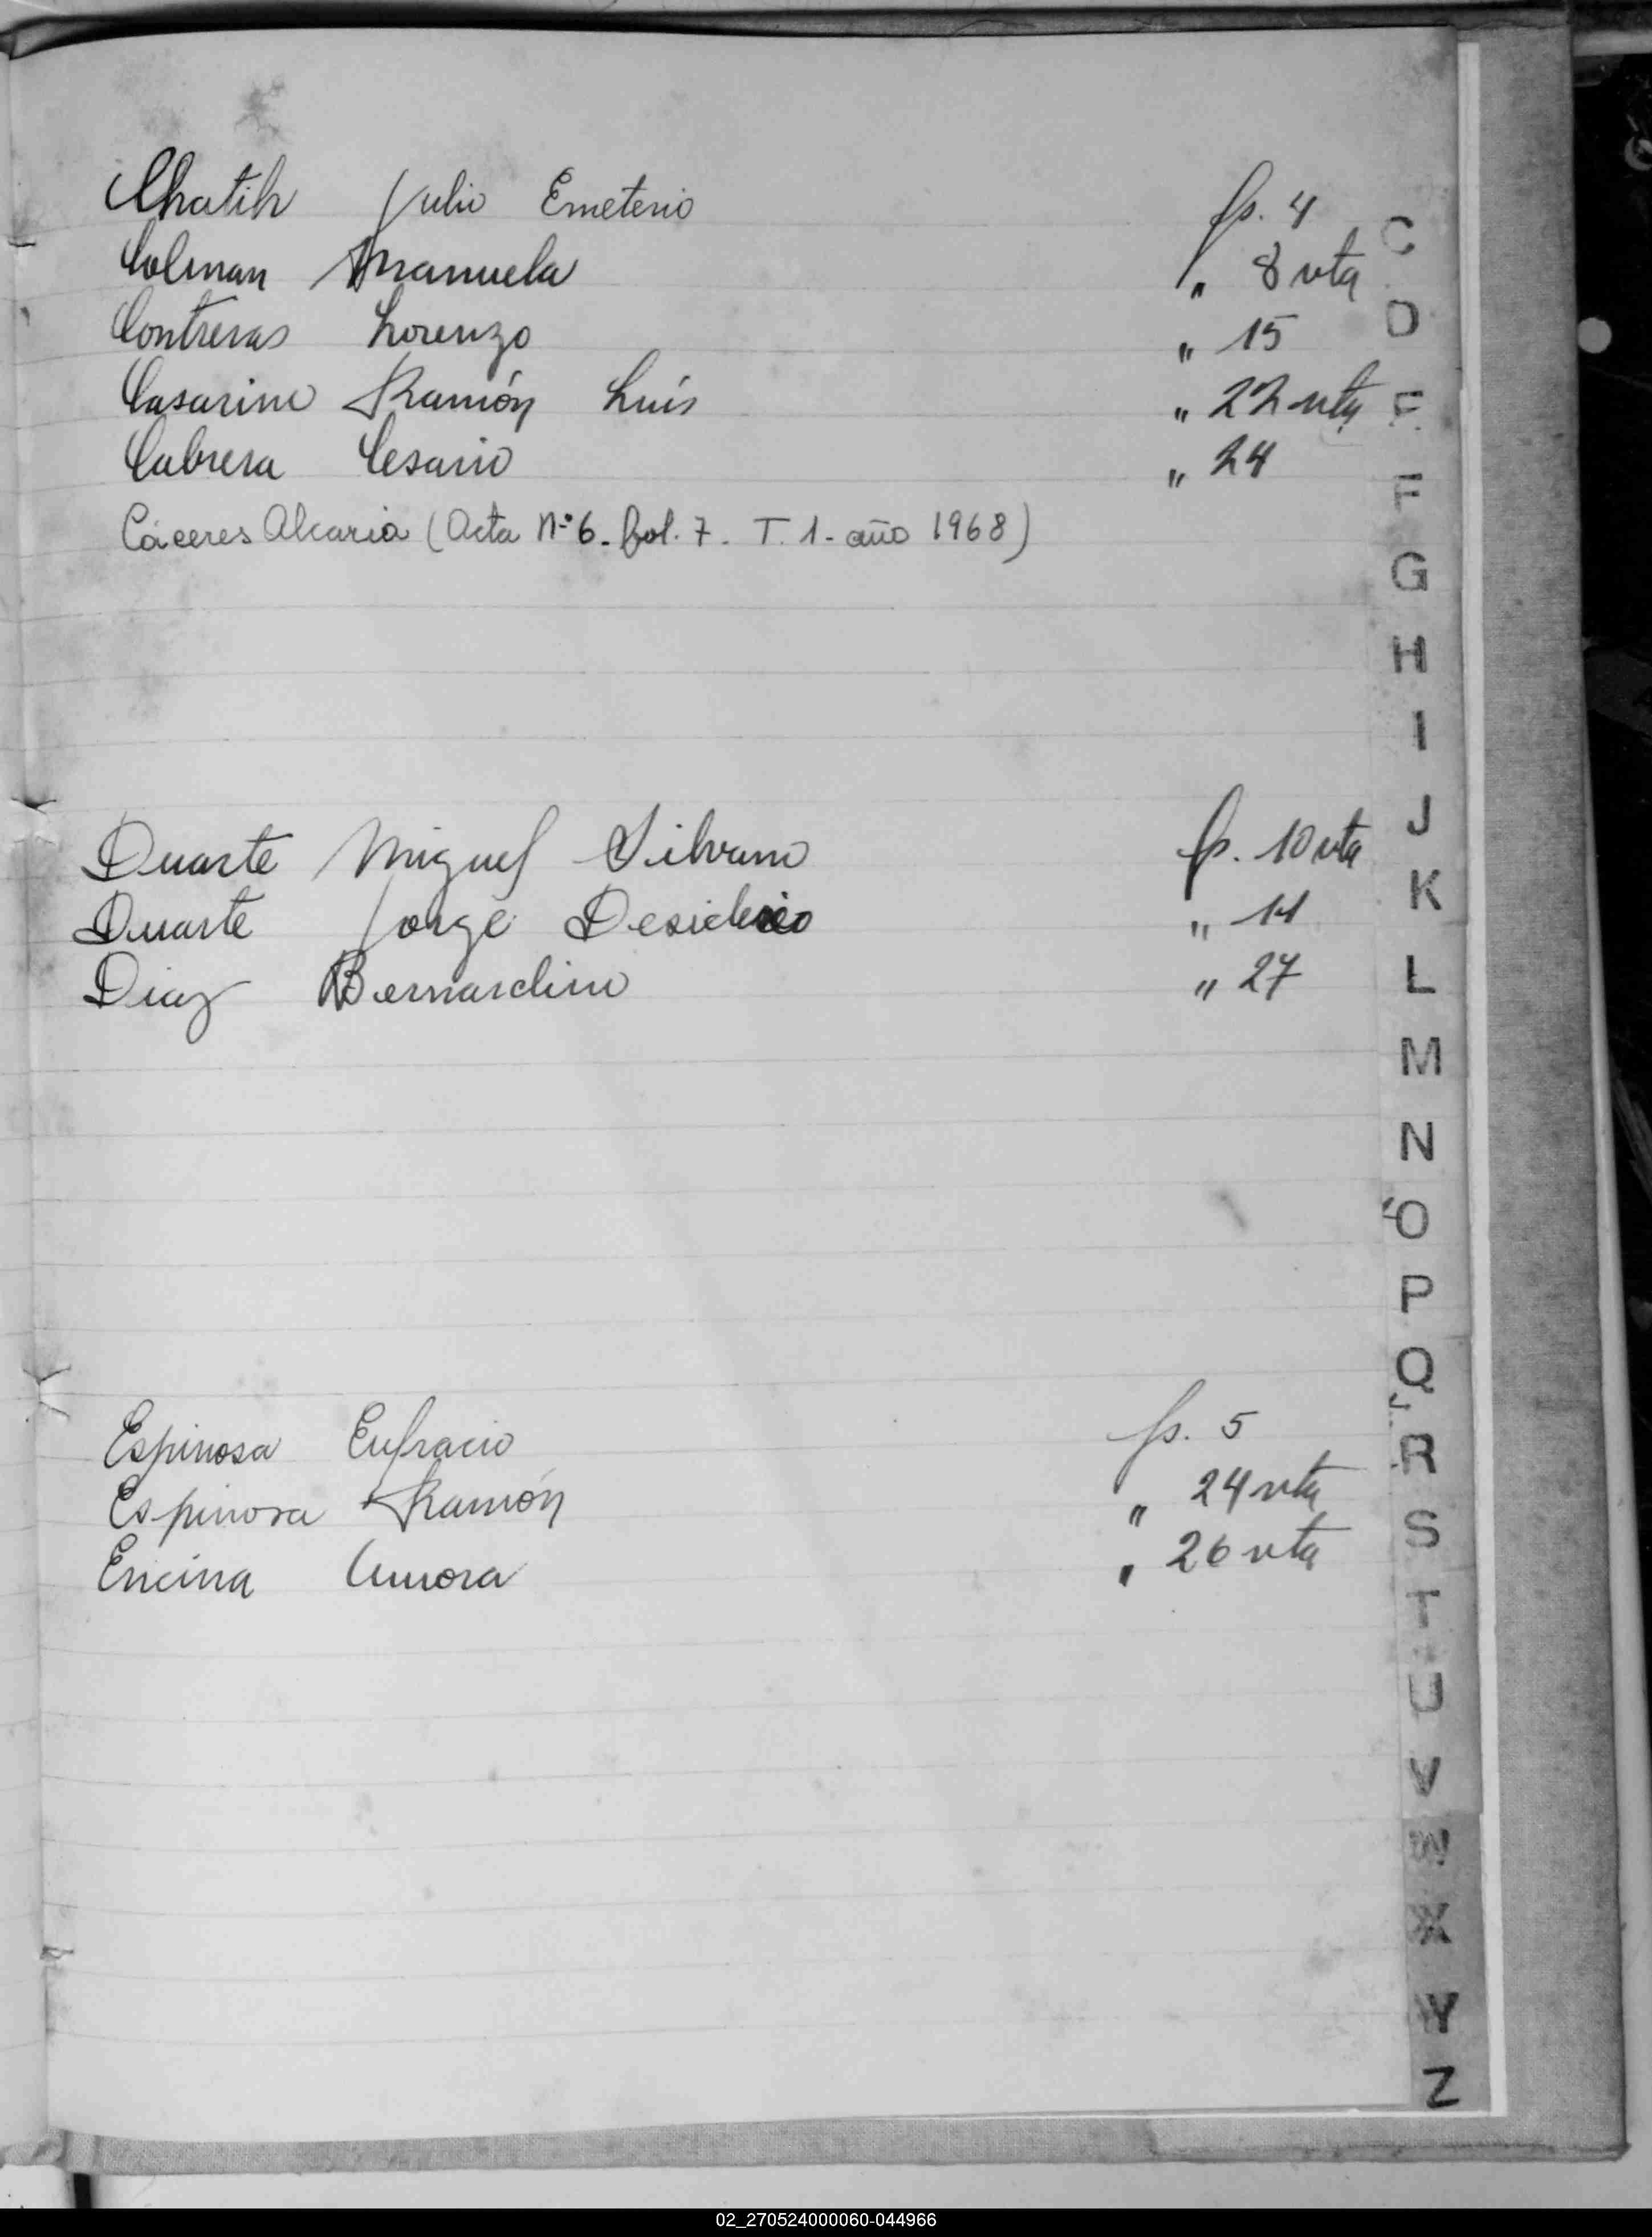 Chatih Julio Emeterio fs. 4
Colman Manuela " 8 vta
Contreras Lorenzo " 15
Casarino Ramón Luís " 22 vta
Cabrera Cesario " 24
Cáceres Alcaria (Acta Nº 6. fol. 7. T. 1. año 1968)
Duarte Miguel Silvano fs. 10 vta
Duarte Jorge Desiderio " 11
Diaz Bernardino " 27
Espinosa Eufracio fs. 5
Espinosa Ramón " 24 vta
Encina Aurora " 26 vta
C
D
E
F
G
H
I
J
K
L
M
N
O
P
Q
R
S
T
U
V
W
X
Y
Z
02_270524000060-044966